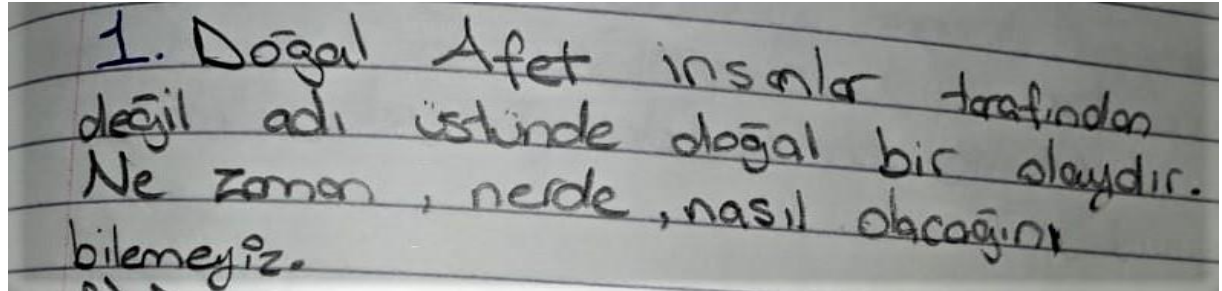 1. Doğal Afet insanlar tarafından
değil adı üstünde doğal bir olaydır.
Ne zaman, nerde, nasıl olacağını
bilemeyiz.